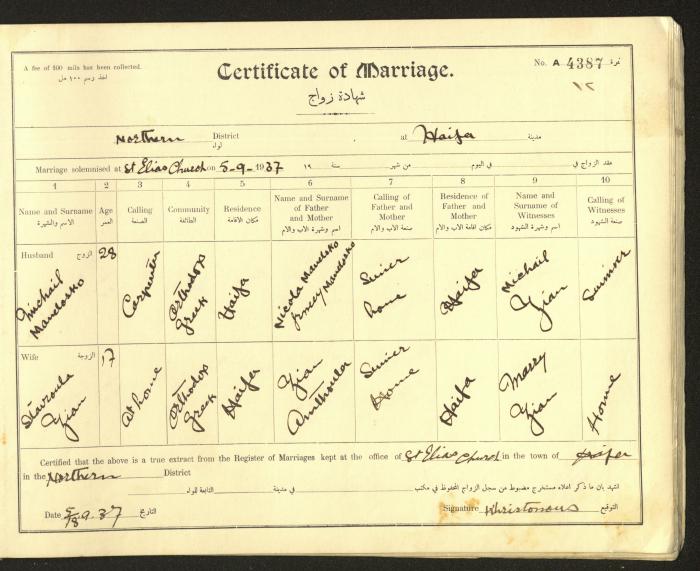 A fee of 100 mils has been collected.
اخذ رسم ١٠٠ مل
Certificate of Marriage.
شهادة زواج
No. A 4387 نمرة
١٢
Northern District لواء at Haifa مدينة
Marriage solemnised at St Elias Church on 5-9-1937 ١٩ سنة من شهر في اليوم عقد الزواج في
1 2 3 4 5 6 7 8 9 10
Name and Surname الاسم والشهرة
Age العمر
Calling الصنعة
Community الطائفة
Residence مكان الاقامة
Name and Surname of Father and Mother اسم وشهرة الاب والام
Calling of Father and Mother صنعة الاب والام
Residence of Father and Mother مكان اقامة الاب والام
Name and Surname of Witnesses اسم وشهرة الشهود
Calling of Witnesses صنعة الشهود
Husband الزوج
Michail Mandesko
28
Carpenter
Orthodox Greek
Haifa
Nicola Mandesko Mandesko
home
Haifa
Michail Zian
Wife الزوجة
Stavroula Zian
17
At home
Orthodox Greek
Haifa
Zian
Home
Haifa
Marry Zian
Home
Certified that the above is a true extract from the Register of Marriages kept at the office of St Elias Church in the town of Haifa
in the Northern District التابعة للواء في مدينة اشهد بان ما ذكر اعلاه مستخرج مضبوط من سجل الزواج المحفوظ في مكتب
Date 9.37 التاريخ Signature التوقيع